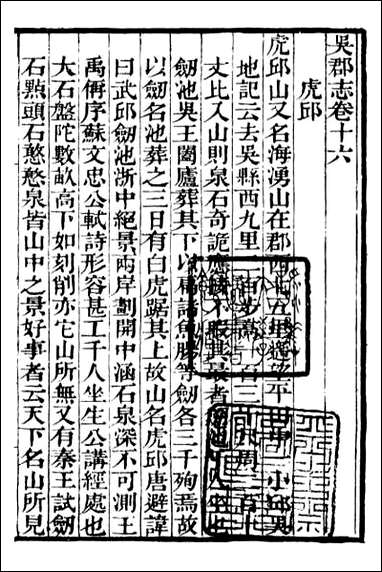 吳郡志卷十六
虎邱
虎邱山又名海湧山在郡西北五里遙望平田中一小邱吳
地記云去吳縣西九里二百步高一百三十尺周二百十
丈比入山則泉石奇詭應接不暇其最者劒池千人坐也
劒池吳王闔廬葬其下以扁諸魚腸等劒各三千殉焉故
以劒名池葬之三日有白虎踞其上故山名虎邱唐避諱
曰武邱劒池浙中絕景兩岸劃開中涵石泉深不可測王
禹偁序蘇文忠公軾詩形容甚工千人坐生公講經處也
大石盤陀數畝高下如刻削亦它山所無又有秦王試劒
石點頭石憨憨泉皆山中之景好事者云天下名山所見